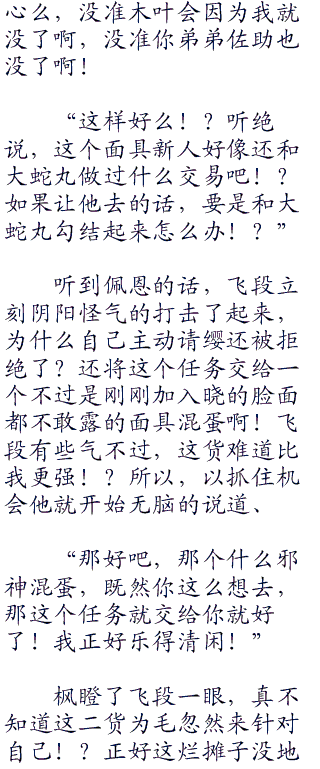 心么，没准木叶会因为我就
没了啊，没准你弟弟佐助也
没了啊！
“这样好么！？听绝
说，这个面具新人好像还和
大蛇丸做过什么交易吧！？
如果让他去的话，要是和大
蛇丸勾结起来怎么办！？”
听到佩恩的话，飞段立
刻阴阳怪气的打击了起来，
为什么自己主动请缨还被拒
绝了？还将这个任务交给一
个不过是刚刚加入晓的脸面
都不敢露的面具混蛋啊！飞
段有些气不过，这货难道比
我更强！？所以，以抓住机
会他就开始无脑的说道、
“那好吧，那个什么邪
神混蛋，既然你这么想去，
那这个任务就交给你就好
了！我正好乐得清闲！”
枫瞪了飞段一眼，真不
知道这二货为毛忽然来针对
自己！？正好这烂摊子没地